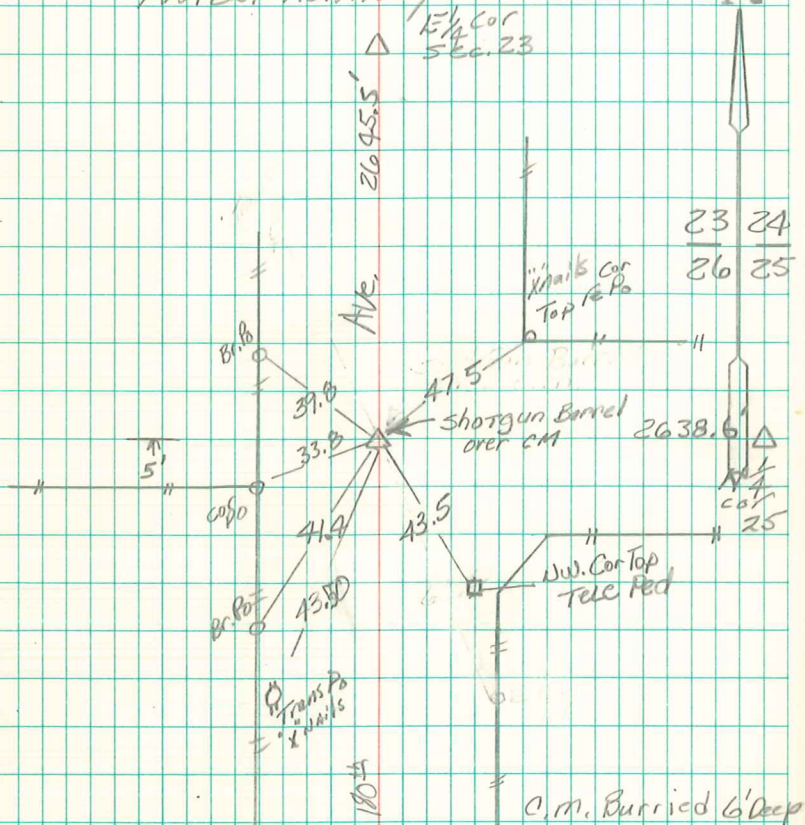 E¼ Cor
Sec. 23
2645.5'
23 24
26 25
"X" nails Cor
Top Fe Po
Ave.
Br. Po
39.8
47.5
Shotgun Barrel
over CM
2638.6'
33.8
5'
N¼
cor
25
copo
41.4
43.5
N.W. Cor Top
Tele Ped
43.50
Br. Po
Trans Po
"X" Nails
180th
C.M. Burried 6' Deep